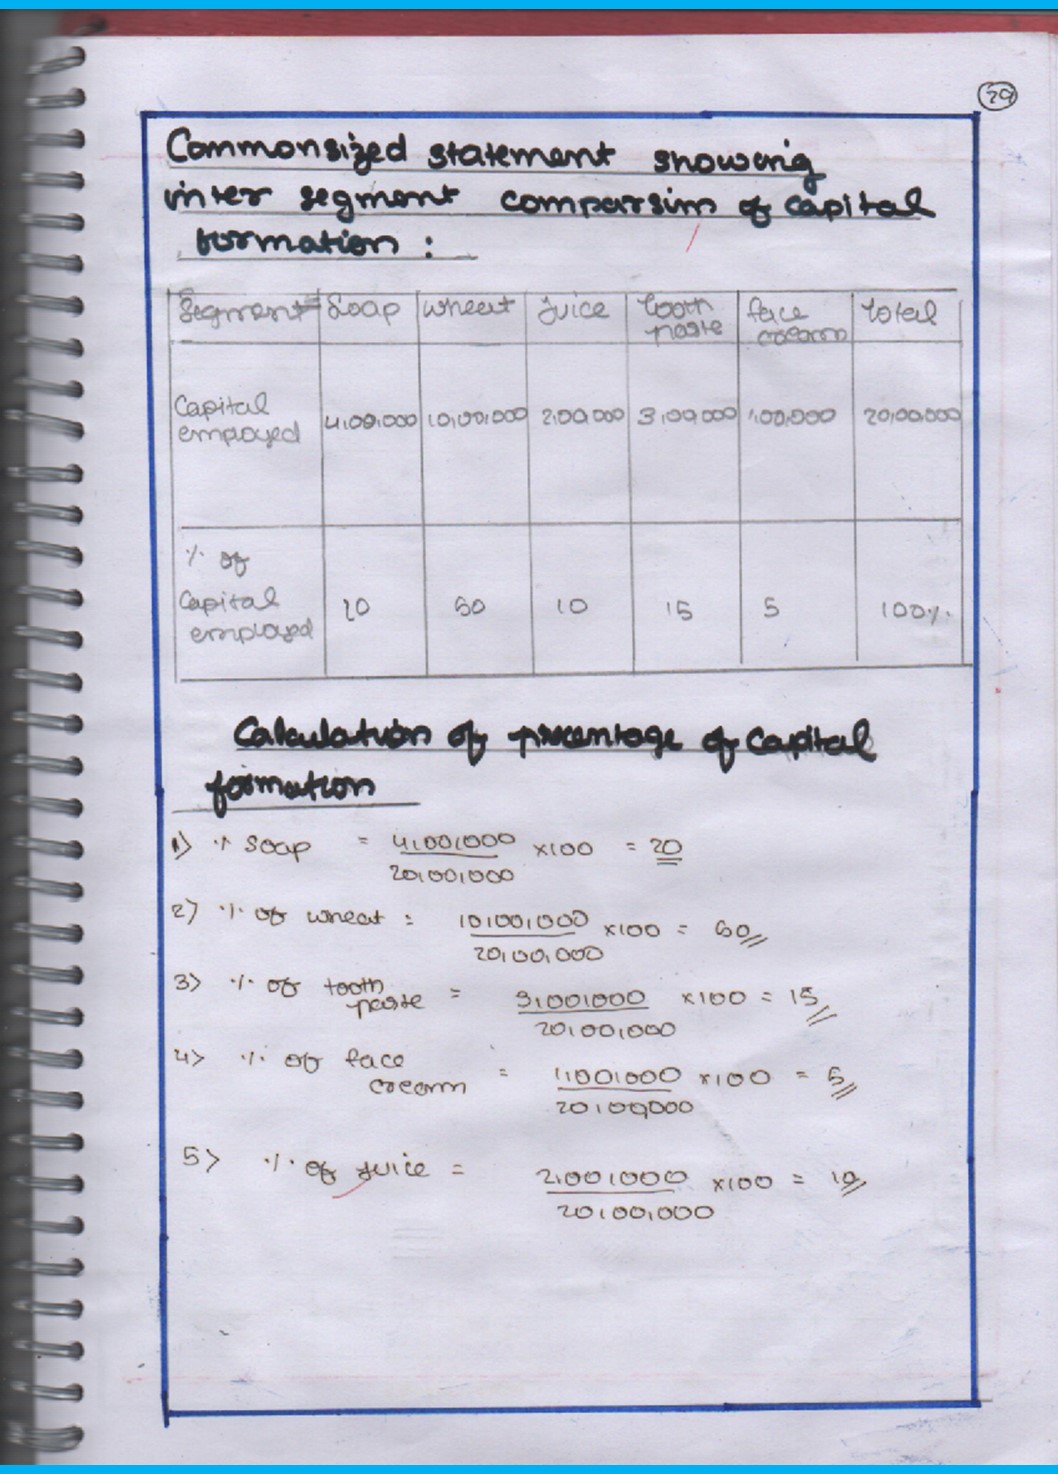 29
Commonsized statement showing
inter segment comparsim of capital
formation :
Segment Soap wheat Juice tooth paste face cream total
Capital employed 4,00,000 10,00,000 2,00,000 3,00,000 1,00,000 20,00,000
% of Capital employed 20 50 10 15 5 100%
Calculation of precentage of capital
formation
1) % Soap = 4,00,000 / 20,00,000 x100 = 20
2) % of wheat = 10,00,000 / 20,00,000 x100 = 50
3) % of tooth paste = 3,00,000 / 20,00,000 x100 = 15
4) % of face cream = 1,00,000 / 20,00,000 x100 = 5
5) % of juice = 2,00,000 / 20,00,000 x100 = 10